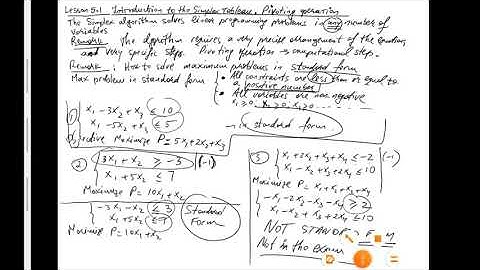 Lesson 5.1 Introduction to the Simplex Tableau; Pivoting operation
The Simplex algorithm solves linear programming problems in any number of
variables
Remark: The algorithm requires a very precise arrangement of the equation,
and very specific steps. Pivoting operation → computational step.
Remark: How to solve maximum problems in standard form
Max problem in standard form
• All constraints are less than or equal to
a positive number
• All variables are non negative
x₁≥0, x₂≥0, x₃≥0
1
x₁ -3x₂ + x₃ ≤ 10
x₁ -5x₂ ≤ 5
Objective Maximize P=5x₁+2x₂+x₃
in standard form
2
3x₁ + x₂ ≥ -3 (-1)
x₁ + 5x₂ ≤ 7
Maximize P= 10x₁+x₂
-3x₁ -x₂ ≤ 3
x₁ + 5x₂ ≤ 7
Maximize P= 10x₁+x₂
Standard
Form
3
x₁ + 2x₂ + x₃ + x₄ ≤ -2 (-1)
x₁ - x₂ + x₃ + 2x₄ ≤ 10
Maximize P= x₁+x₂+x₃+x₄
-x₁ -2x₂ -x₃ -x₄ ≥ 2
x₁ -x₂ + x₃ + 2x₄ ≤ 10
NOT STAND
Not in the exam